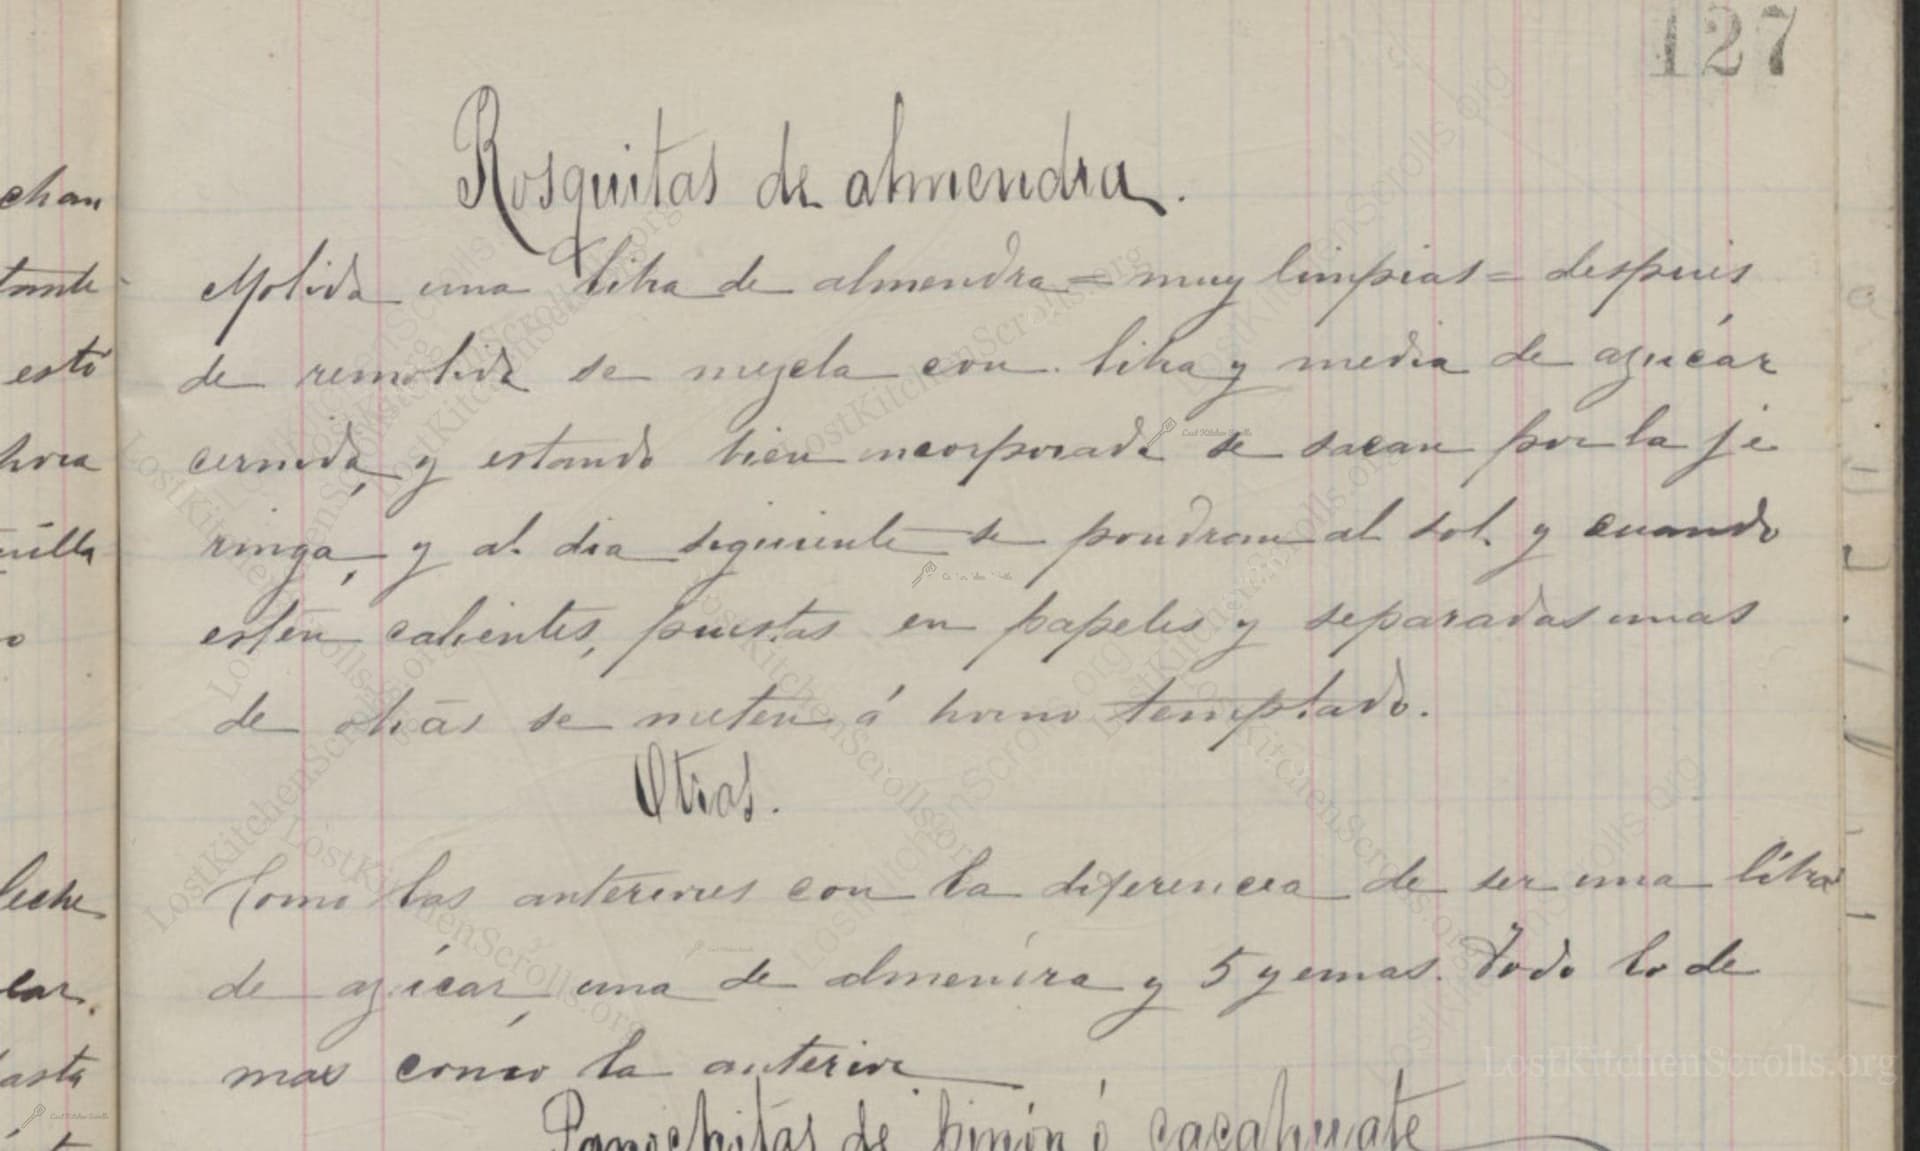 127
chan
Rosquitas de almendra.
tante
Molida una libra de almendra = muy limpias = despues
esté
de remolida se mezcla con libra y media de azucár
hora
cernida, y estando bien incorporada se sacan por la je
nilla
ringa, y al dia siguiente se pondran al sol y cuando
o
estén calientes, puestas en papeles y separadas unas
de otras se meten á horno templado.
Otras.
leche
Como las anteriores con la diferencia de ser una libra
car.
de azúcar, una de almendra y 5 yemas. Todo lo de
asta
mas como la anterior
Panochitas de piñón ó cacahuate
LostKitchenScrolls.org